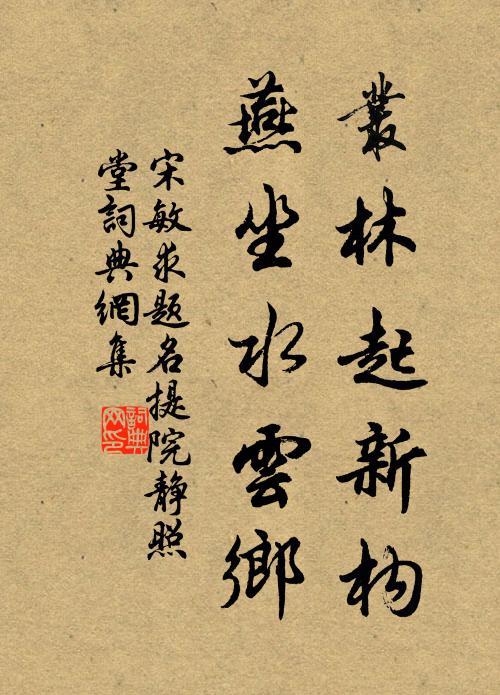 叢林起新构
燕坐水雲鄉
宋敏求題名提院靜照
堂詞典網集
詞典网印